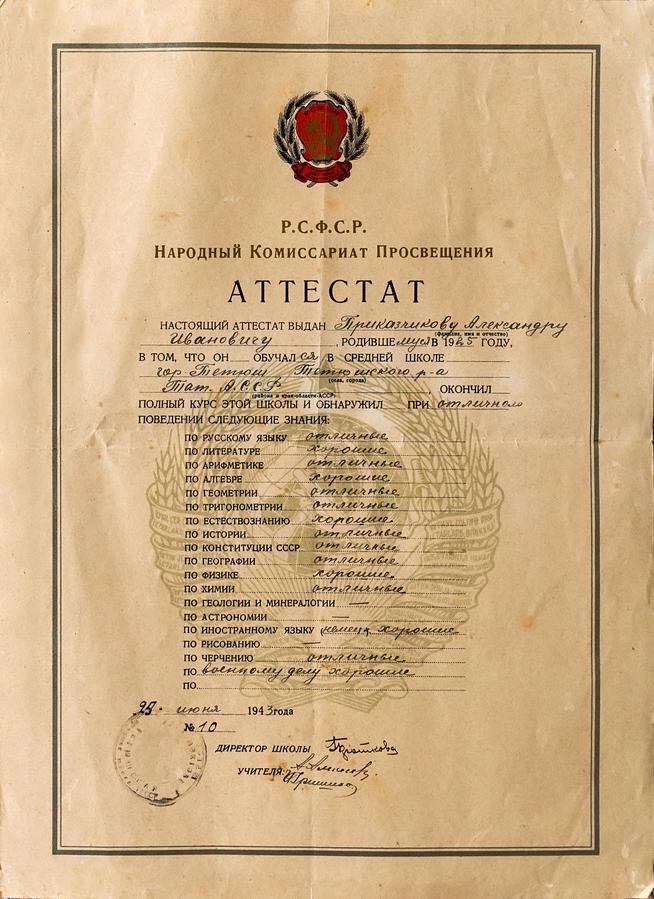 Р.С.Ф.С.Р.
Народный Комиссариат Просвещения
АТТЕСТАТ
НАСТОЯЩИЙ АТТЕСТАТ ВЫДАН Приказчикову Александру
(фамилия, имя и отчество)
Ивановичу, РОДИВШЕМУСЯ В 1925 ГОДУ,
В ТОМ, ЧТО ОН ОБУЧАЛСЯ В СРЕДНЕЙ ШКОЛЕ
гор Тетюш Тетюшского р-а
(села, города)
Тат. АССР ОКОНЧИЛ
(района и края-области-АССР)
ПОЛНЫЙ КУРС ЭТОЙ ШКОЛЫ И ОБНАРУЖИЛ ПРИ отличном
ПОВЕДЕНИИ СЛЕДУЮЩИЕ ЗНАНИЯ:
ПО РУССКОМУ ЯЗЫКУ отличные
ПО ЛИТЕРАТУРЕ хорошие
ПО АРИФМЕТИКЕ отличные
ПО АЛГЕБРЕ хорошие
ПО ГЕОМЕТРИИ отличные
ПО ТРИГОНОМЕТРИИ отличные
ПО ЕСТЕСТВОЗНАНИЮ хорошие
ПО ИСТОРИИ отличные
ПО КОНСТИТУЦИИ СССР отличные
ПО ГЕОГРАФИИ отличные
ПО ФИЗИКЕ хорошие
ПО ХИМИИ отличные
ПО ГЕОЛОГИИ И МИНЕРАЛОГИИ —
ПО АСТРОНОМИИ —
ПО ИНОСТРАННОМУ ЯЗЫКУ (немец) хорошие
ПО РИСОВАНИЮ —
ПО ЧЕРЧЕНИЮ отличные
ПО военному делу хорошие
ПО
июня 1943 года
№ 10
ДИРЕКТОР ШКОЛЫ
УЧИТЕЛЯ: